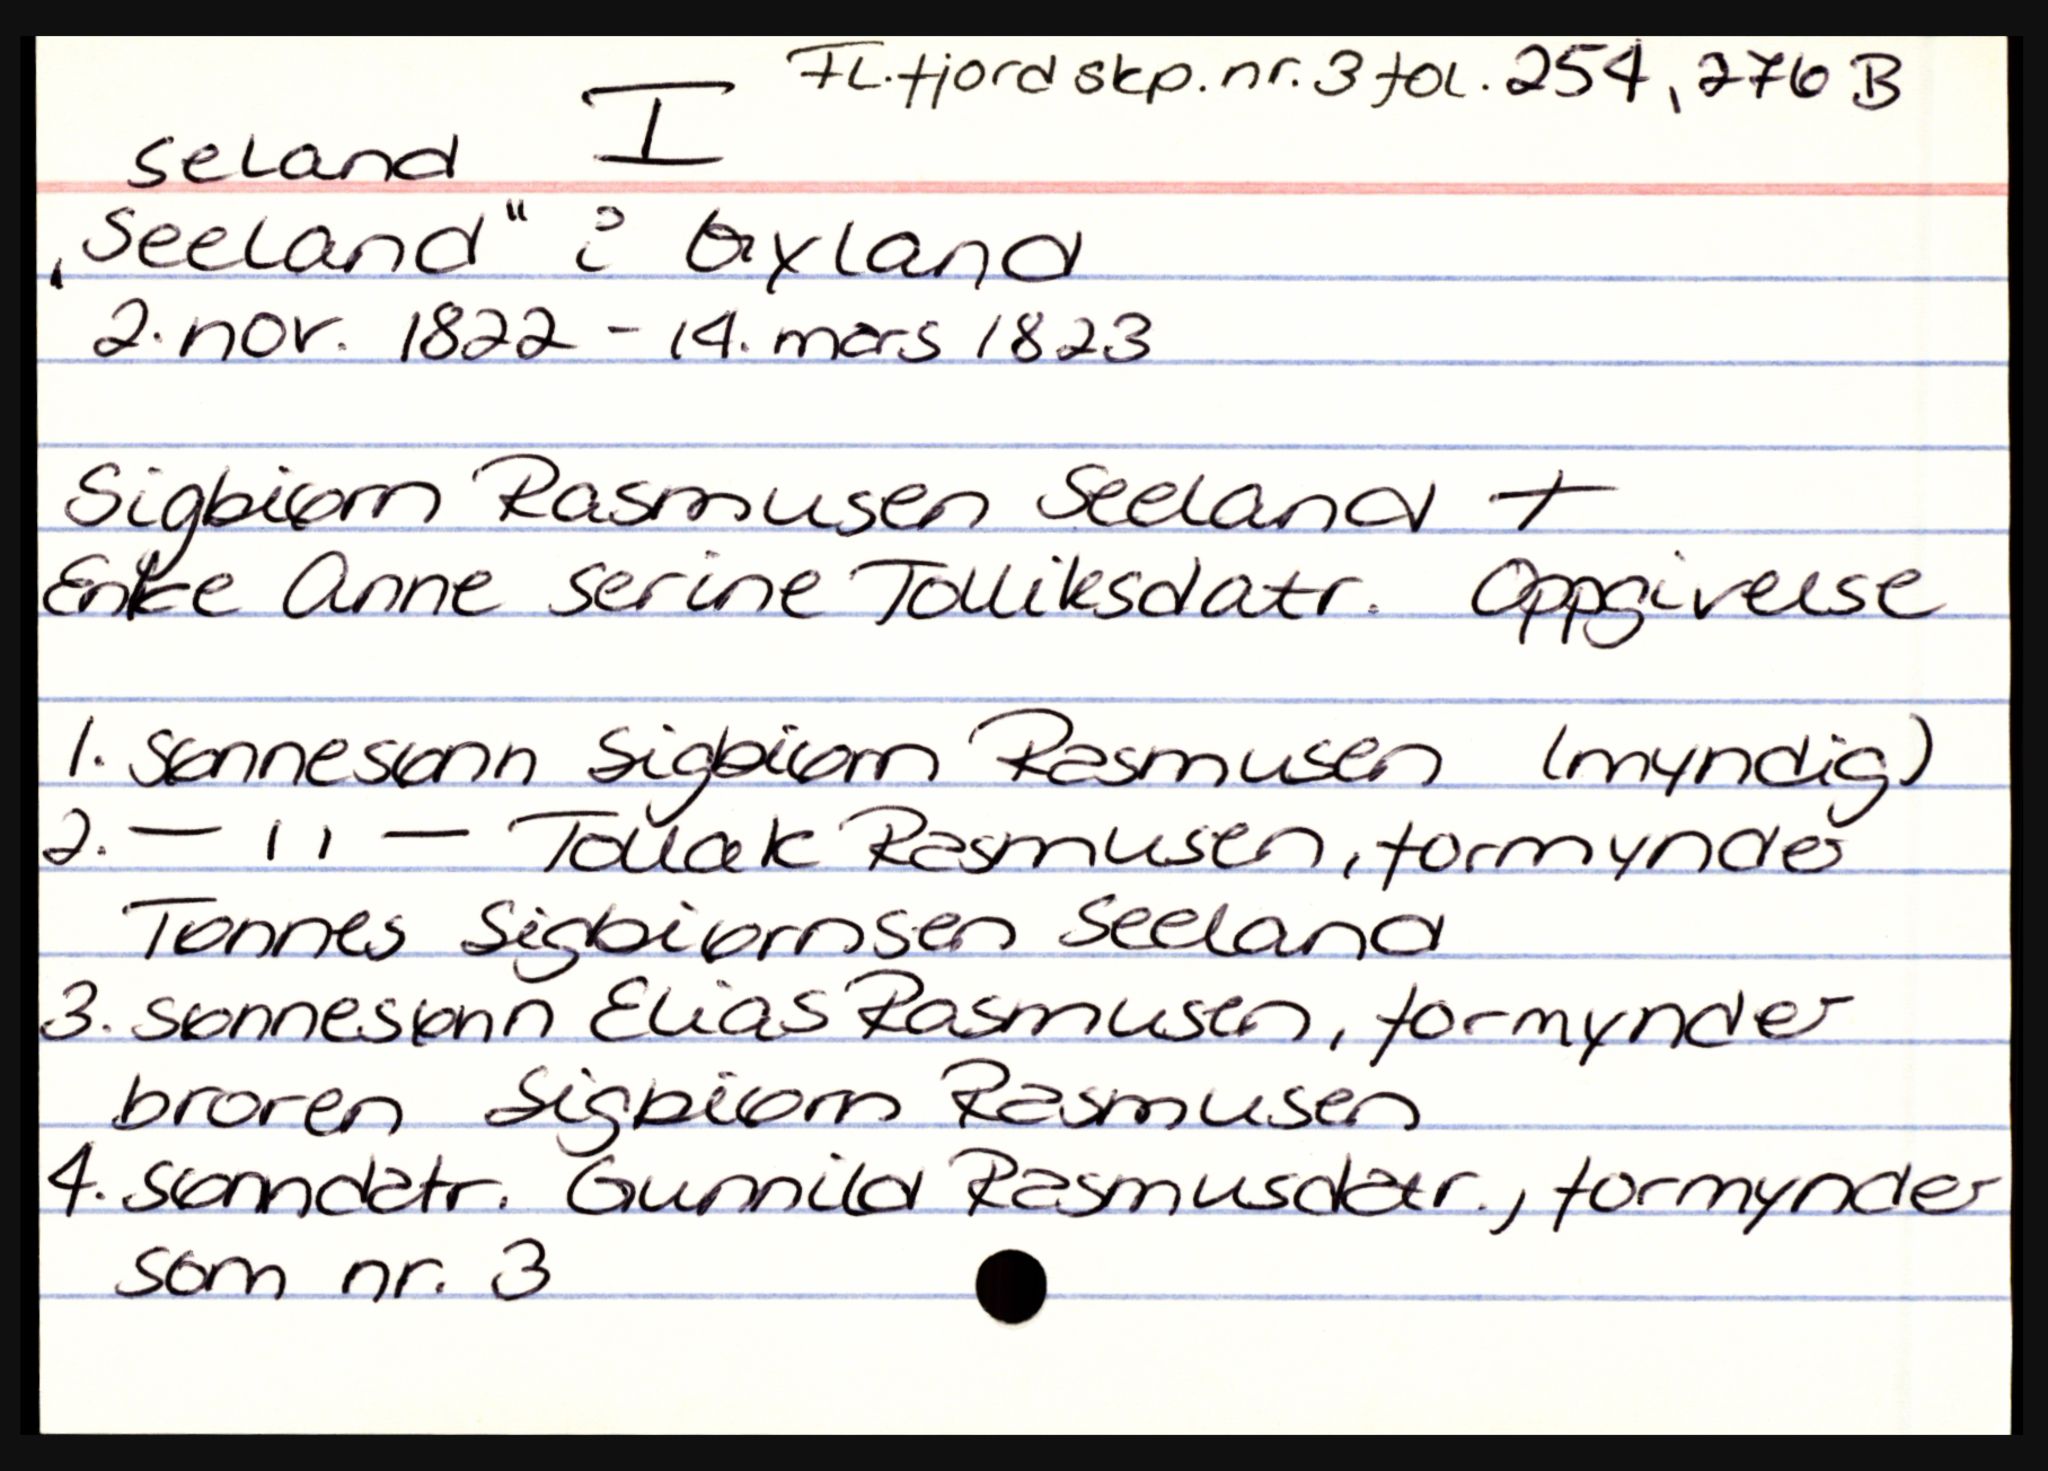 Fl.fjord skp. nr. 3 fol. 254, 276 B
I
Seland
„Seeland" i Øyland
2. nov. 1822 - 14. mars 1823
Sigbiørn Rasmusen Seeland +
Enke Anne Serine Tolliksdatr. Oppgivelse
1. Sønnesønn Sigbiørn Rasmusen (myndig)
2. — " — Tollak Rasmusen, formynder
Tønnes Sigbiørnsen Seeland
3. Sønnesønn Elias Rasmusen, formynder
broren Sigbiørn Rasmusen
4. Sønndatr. Gunnild Rasmusdatr., formynder
som nr. 3